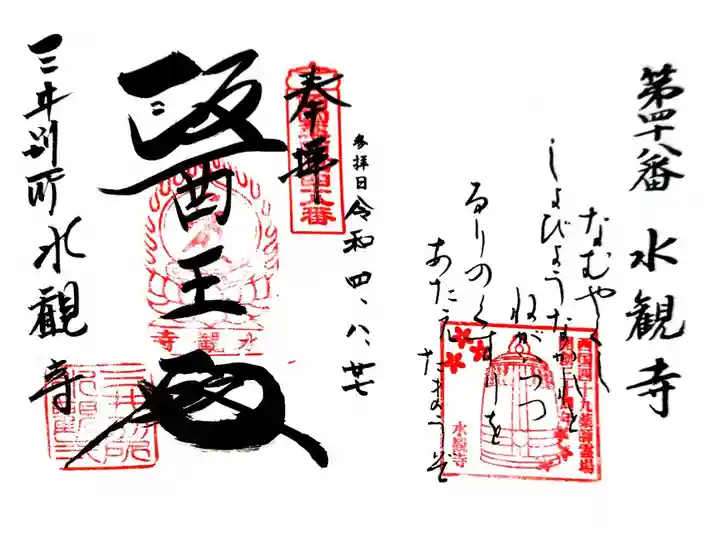 第四十八番 水観寺
なむやくし
しょびょうなかれと
ねがいつつ
るりのくすりを
あたえたまうぞ
西国四十九薬師霊場
水観寺
参拝日 令和四、八、廿七
奉拝
醫王殿
水観寺
三井別所 水観寺